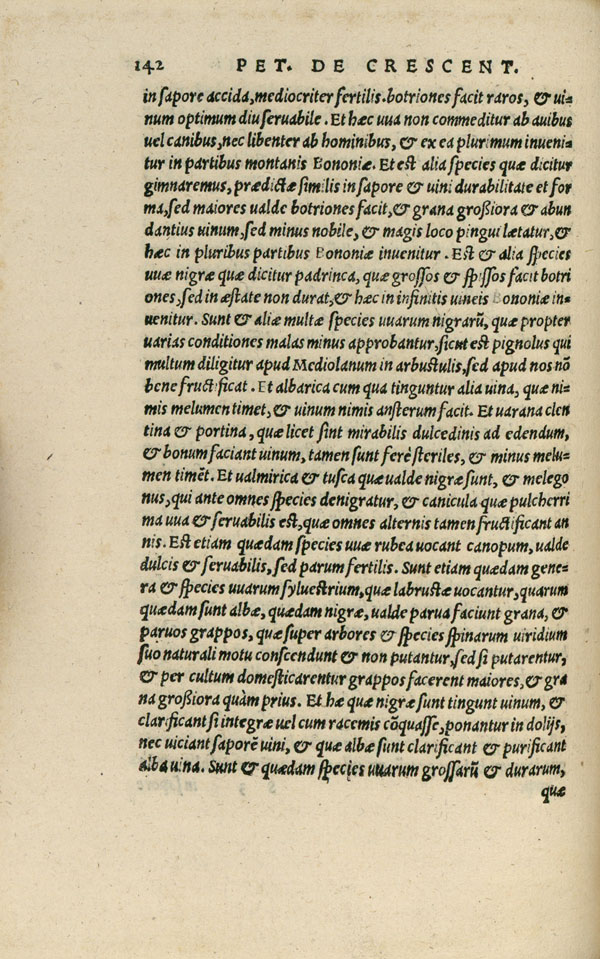 142 PET. DE CRESCENT.
in sapore accida, mediocriter fertilis. botriones facit raros, & ui-
num optimum diu seruabile. Et hæc uua non commeditur ab auibus
uel canibus, nec libenter ab hominibus, & ex ea plurimum inueni-
tur in partibus montanis Bononiæ. Et est alia species quæ dicitur
gimnaremus, prædictæ similis in sapore & uini durabilitate et for
ma, sed maiores ualde botriones facit, & grana großiora & abun
dantius uinum, sed minus nobile, & magis loco pingui lætatur, &
hæc in pluribus partibus Bononiæ inuenitur. Est & alia species
uuæ nigræ quæ dicitur padrinca, quæ grossos & spissos facit botri
ones, sed in æstate non durat, & hæc in infinitis uineis Bononiæ in-
uenitur. Sunt & aliæ multæ species uuarum nigrarũ, quæ propter
uarias conditiones malas minus approbantur, sicut est pignolus qui
multum diligitur apud Mediolanum in arbustulis, sed apud nos nõ
bene fructificat. Et albarica cum qua tinguntur alia uina, quæ ni-
mis melumen timet, & uinum nimis ansterum facit. Et uarana clen
tina & portina, quæ licet sint mirabilis dulcedinis ad edendum,
& bonum faciant uinum, tamen sunt ferè steriles, & minus melu-
men timẽt. Et ualmirica & tusca quæ ualde nigræ sunt, & melego
nus, qui ante omnes species denigratur, & canicula quæ pulcherri
ma uua & seruabilis est, quæ omnes alternis tamen fructificant an
nis. Est etiam quædam species uuæ rubea uocant canopum, ualde
dulcis & seruabilis, sed parum fertilis. Sunt etiam quædam gene-
ra & species uuarum syluestrium, quæ labrustæ uocantur, quarum
quædam sunt albæ, quædam nigræ, ualde parua faciunt grana, &
paruos grappos, quæ super arbores & species spinarum uiridium
suo naturali motu conscendunt & non putantur, sed si putarentur,
& per cultum domesticarentur grappos facerent maiores, & gra
na großiora quàm prius. Et hæ quæ nigræ sunt tingunt uinum, &
clarificant si integræ uel cum racemis cõquassę, ponantur in dolijs,
nec uiciant saporẽ uini, & quæ albæ sunt clarificant & purificant
alba uina. Sunt & quædam species uuarum grossarũ & durarum,
quæ